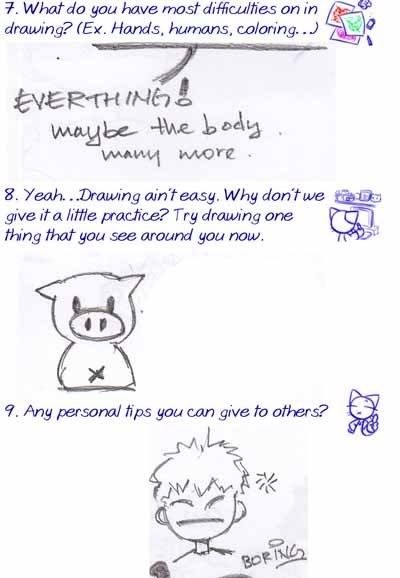 7. What do you have most difficulties on in
drawing? (Ex. Hands, humans, coloring...)
EVERTHING!
maybe the body.
many more.
8. Yeah...Drawing ain't easy. Why don't we
give it a little practice? Try drawing one
thing that you see around you now.
9. Any personal tips you can give to others?
BORING